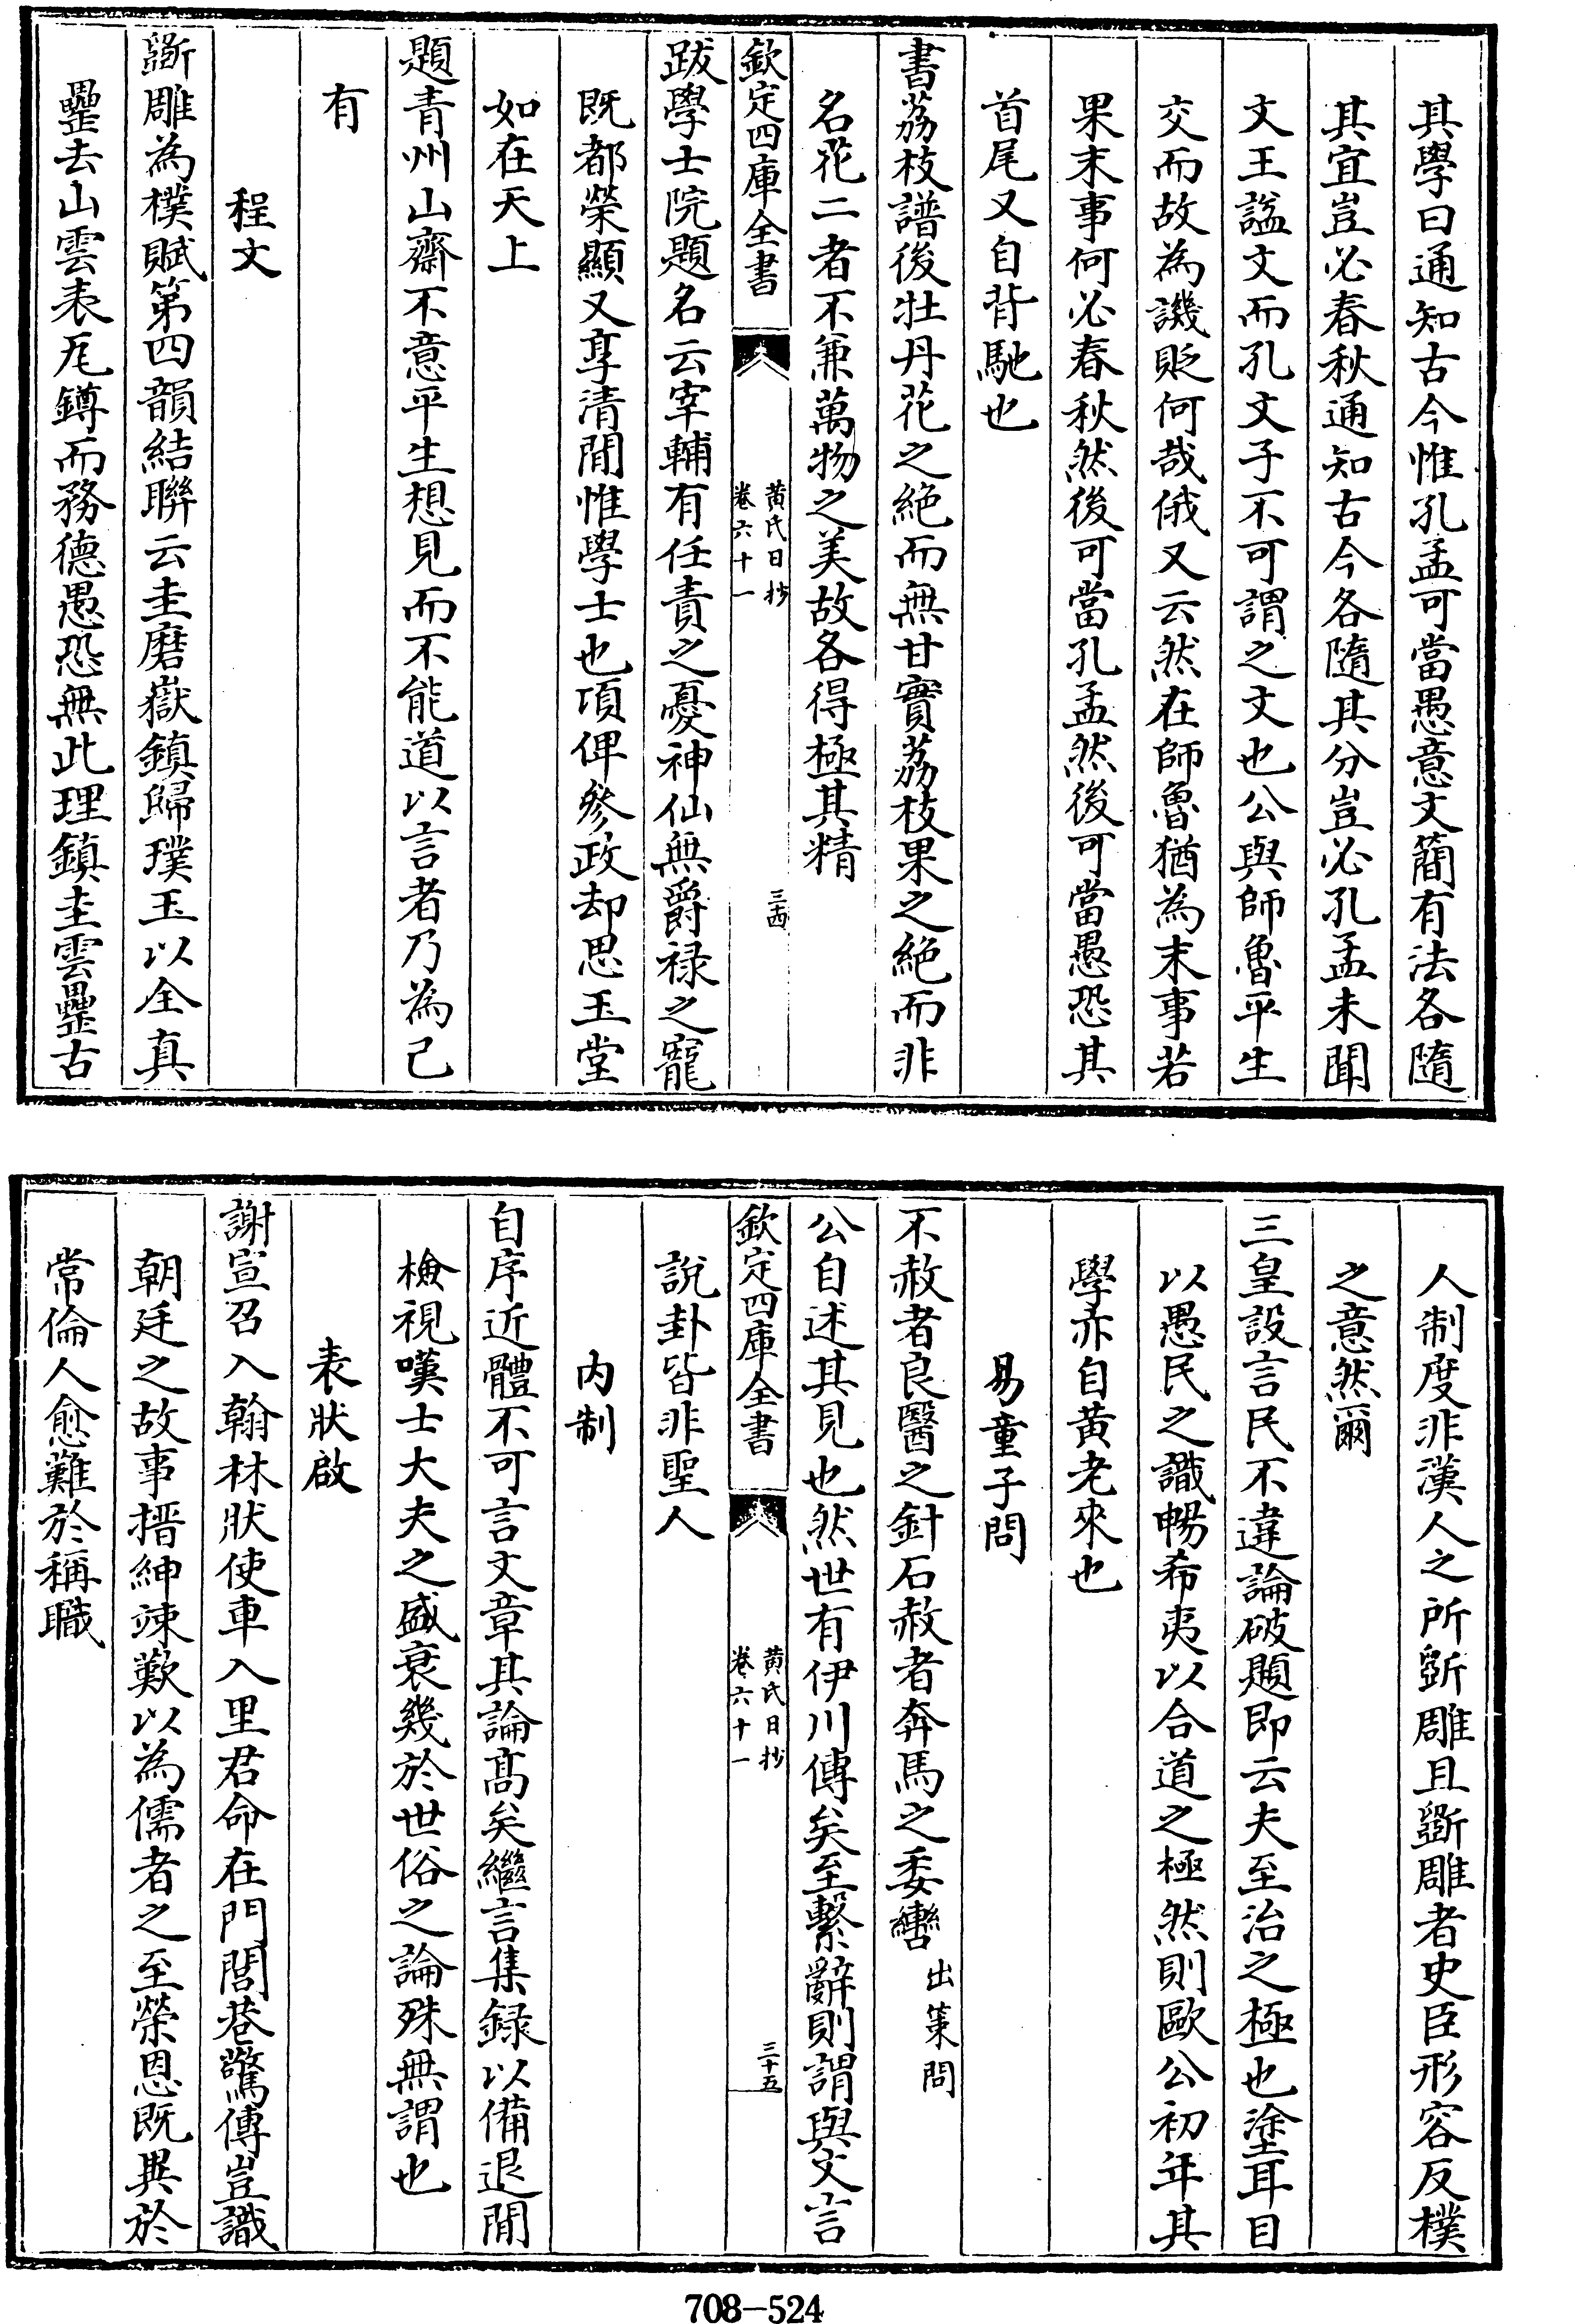 其學曰通知古今惟孔孟可當愚意文簡有法各隨
其宜豈必春秋通知古今各隨其分豈必孔孟未聞
文王諡文而孔文子不可謂之文也公與師魯平生
交而故為譏貶何哉俄又云然在師魯猶為末事若
果末事何必春秋然後可當孔孟然後可當愚恐其
首尾又自背馳也
書荔枝譜後牡丹花之絶而無甘實荔枝果之絶而非
名花二者不兼萬物之美故各得極其精
欽定四庫全書
黄氏日抄
卷六十一
三十四
跋學士院題名云宰輔有任責之憂神仙無爵禄之寵
既都榮顯又享清閒惟學士也頃俾參政却思玉堂
如在天上
題青州山齋不意平生想見而不能道以言者乃為己
有
程文
斲雕為樸賦第四韻結聯云圭磨嶽鎮歸璞玉以全真
罍去山雲表瓦鐏而務德愚恐無此理鎮圭雲罍古
人制度非漢人之所斲雕且斲雕者史臣形容反樸
之意然爾
三皇設言民不違論破題即云夫至治之極也塗耳目
以愚民之識暢希夷以合道之極然則歐公初年其
學亦自黄老來也
易童子問
不赦者良醫之針石赦者奔馬之委轡
出策問
公自述其見也然世有伊川傳矣至繫辭則謂與文言
欽定四庫全書
黄氏日抄
卷六十一
三十五
説卦皆非聖人
内制
自序近體不可言文章其論高矣繼言集録以備退閒
檢視嘆士大夫之盛衰幾於世俗之論殊無謂也
表狀啟
謝宣召入翰林狀使車入里君命在門閭巷驚傳豈識
朝廷之故事搢紳竦歎以為儒者之至榮恩既異於
常倫人愈難於稱職
708-524